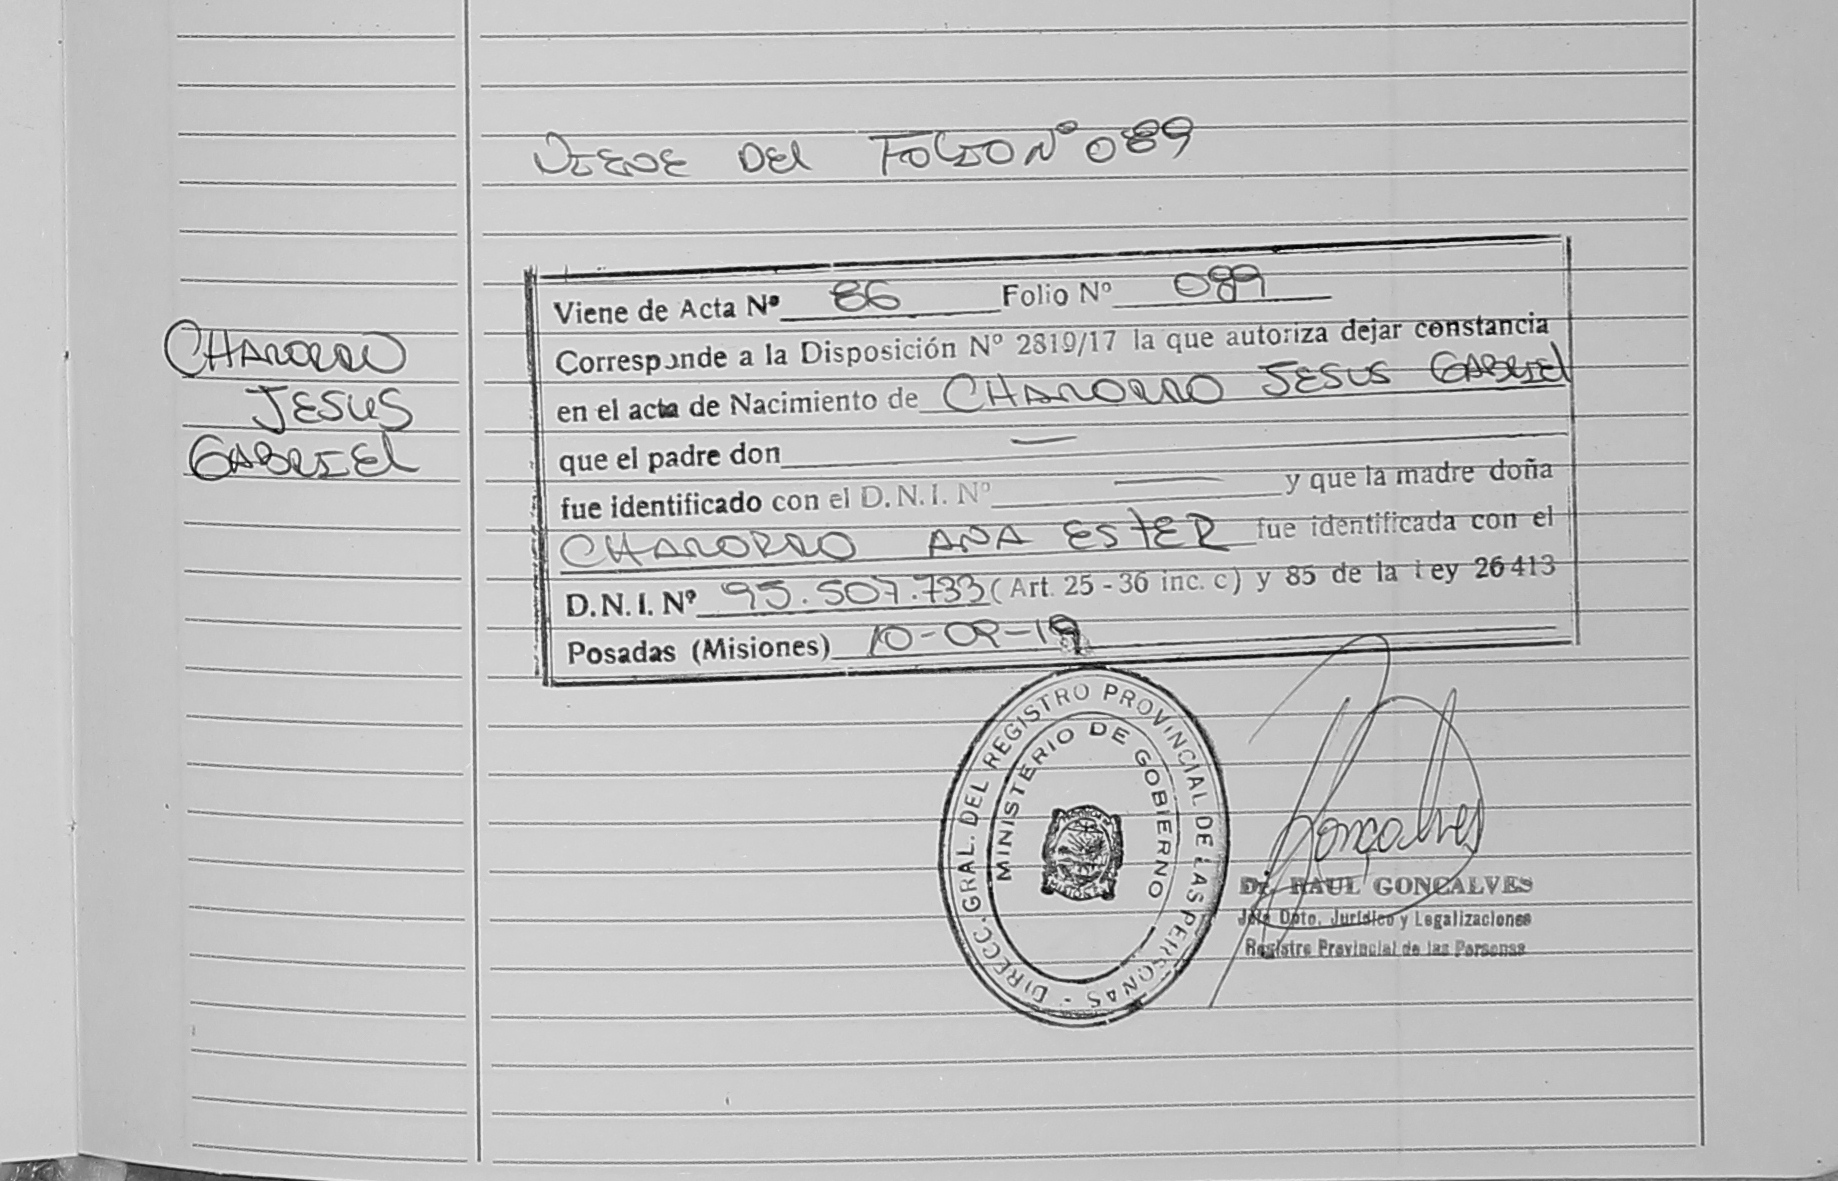 VIENE DEL FOLIO Nº 089
CHAMORRO
JESUS
GABRIEL
Viene de Acta Nº 86 Folio Nº 089
Corresponde a la Disposición Nº 2819/17 la que autoriza dejar constancia
en el acta de Nacimiento de CHAMORRO JESUS GABRIEL
que el padre don —
fue identificado con el D.N.I. Nº — y que la madre doña
CHAMORRO ANA ESTER fue identificada con el
D.N.I. Nº 95.507.733 (Art. 25 - 36 inc. c) y 85 de la Ley 26413
Posadas (Misiones) 10-09-19
DIRECC. GRAL. DEL REGISTRO PROVINCIAL DE LAS PERSONAS -
MINISTERIO DE GOBIERNO
Goncalves
Dr. RAUL GONCALVES
Jefe Dpto. Jurídico y Legalizaciones
Registro Provincial de las Personas